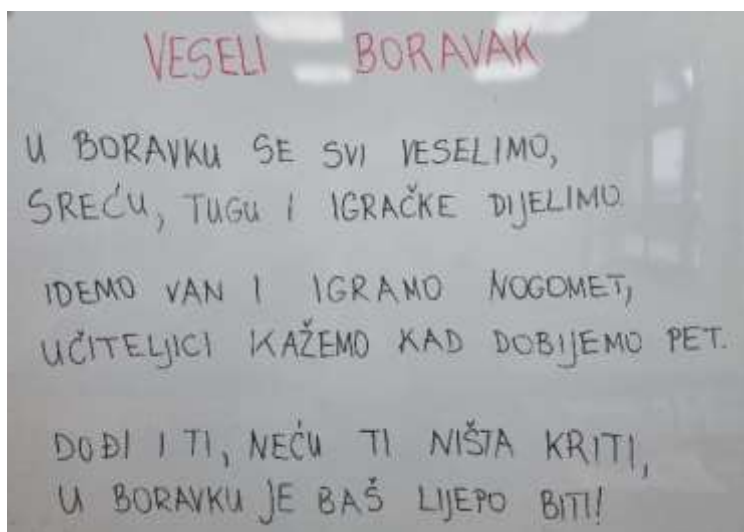 VESELI BORAVAK
U BORAVKU SE SVI VESELIMO,
SREĆU, TUGU I IGRAČKE DIJELIMO.
IDEMO VAN I IGRAMO NOGOMET,
UČITELJICI KAŽEMO KAD DOBIJEMO PET.
DOĐI I TI, NEĆU TI NIŠTA KRITI,
U BORAVKU JE BAŠ LIJEPO BITI!